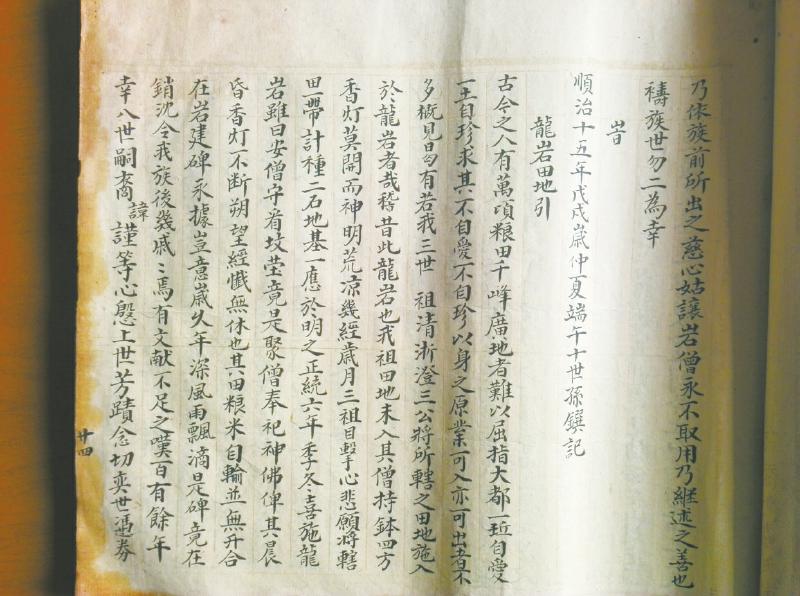 乃体族前所出之慈心姑讓岩僧永不取用乃継述之善也
禱族世勿二為幸
旹
順治十五年戊戌歲仲夏端午十世孫鐉記
龍岩田地引
古今之人有萬頃粮田千峰廣地者難以屈指大都一坵自愛
一土自珍求其不自愛不自珍以身之原業可入亦可出者不
多概見曷有若我三世 祖清淅澄三公將所轄之田地施入
於龍岩者哉稽昔此龍岩也我祖田地未入其僧持鉢四方
香灯莫開而神明荒凉幾經歲月三祖目擊心悲願将轄
田一帶計種二石地基一應於明之正統六年季冬喜施龍
岩雖曰安僧守看坟茔竟是聚僧奉祀神佛俾其晨
昏香灯不断朔望經懺無休也其田粮米自輸並無升合
在岩建碑永據豈意歲久年深風雨飄滴是碑竟在
銷沈令我族後幾戚〻焉有文献不足之嘆百有餘年
幸八世嗣裔諱謹等心慇上世芳蹟念切奕世馮券
廿四